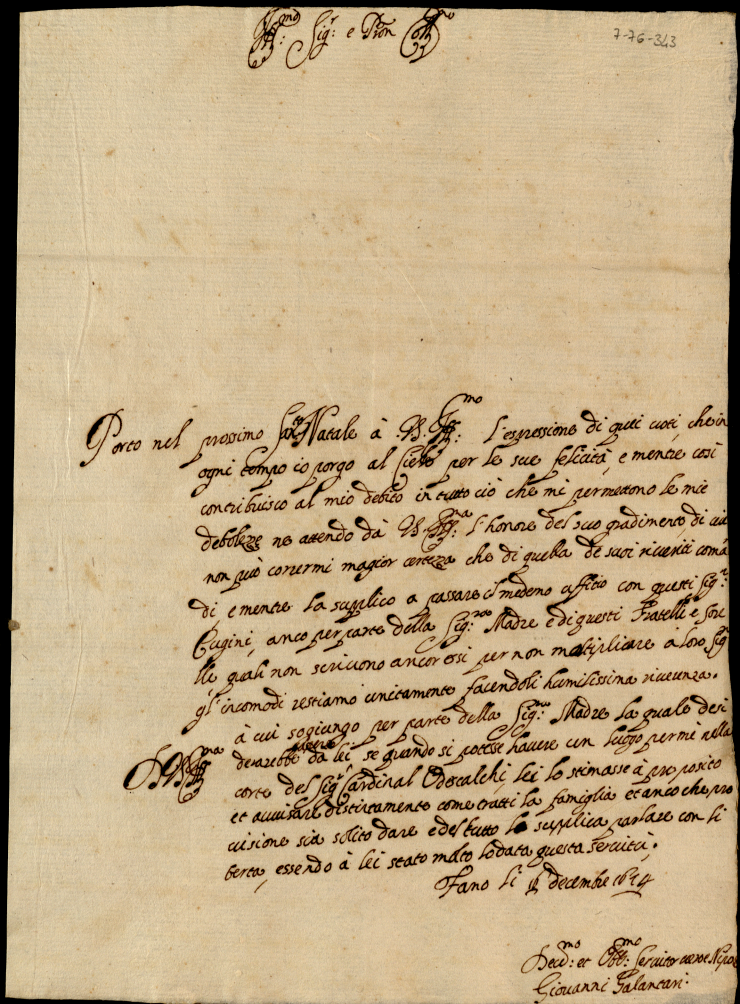 Ill:mo Sig:r e Pron Coll:mo
7-76-343
Porto nel prossimo San:to Natale à V.S. Ill:mo l'espressione di quei voti, che in
ogni tempo io porgo al Cielo per le sue felicità, e mentre così
contribuisco al mio debito in tutto ciò che mi permettono le mie
debolezze ne attendo dà V.S. Ill:ma l'honore del suo gradimento di cui
non può corrermi magior certezza che di quella de suoi riveriti coma
di, e mentre la supplico a passare il medemo uffitio con questi Sig:ri
Cugini, anco per parte della Sig:ra Madre e di questi Fratelli e Sore
lle quali non scrivono ancor essi per non moltiplicare a loro Sig:ri
gl'incomodi restiamo unitamente facendoli humilissima riverenza.
à cui sogiungo per parte della Sig:ra Madre la quale desi
D.V.S. Ill:ma derarebbe sapere da lei, se quando si potesse havere un luogo per mè nella
corte del Sig:r Cardinal Odescalchi, lei lo stimasse à proposito
et avvisare distintamente come tratti la famiglia et anco che pro
visione sia solito dare e del tutto la supplica parlare con li
bertà, essendo à lei stato molto lodata questa servitù.
Fano li decembre 1674
Dev:mo et Obb:mo Servitor vero e Nipote
Giovanni Galantari